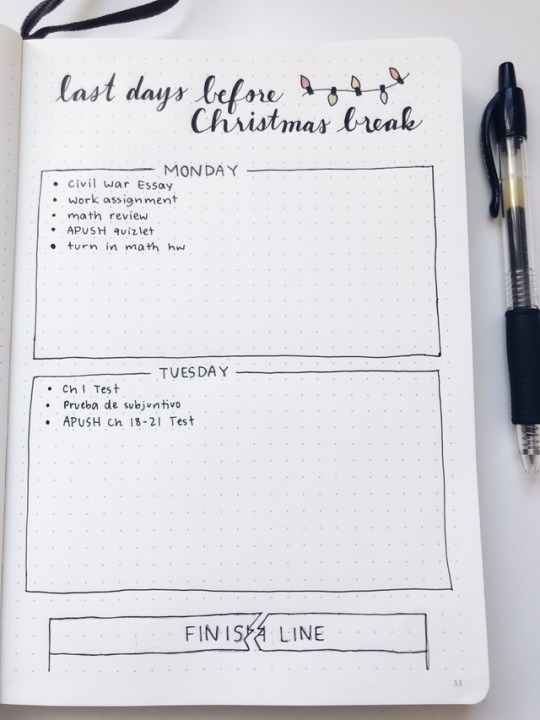 last days before
Christmas break
MONDAY
• Civil War Essay
• work assignment
• math review
• APUSH quizlet
• turn in math hw
TUESDAY
• Ch 1 Test
• Prueba de subjuntivo
• APUSH Ch 18-21 Test
FINISH LINE
33